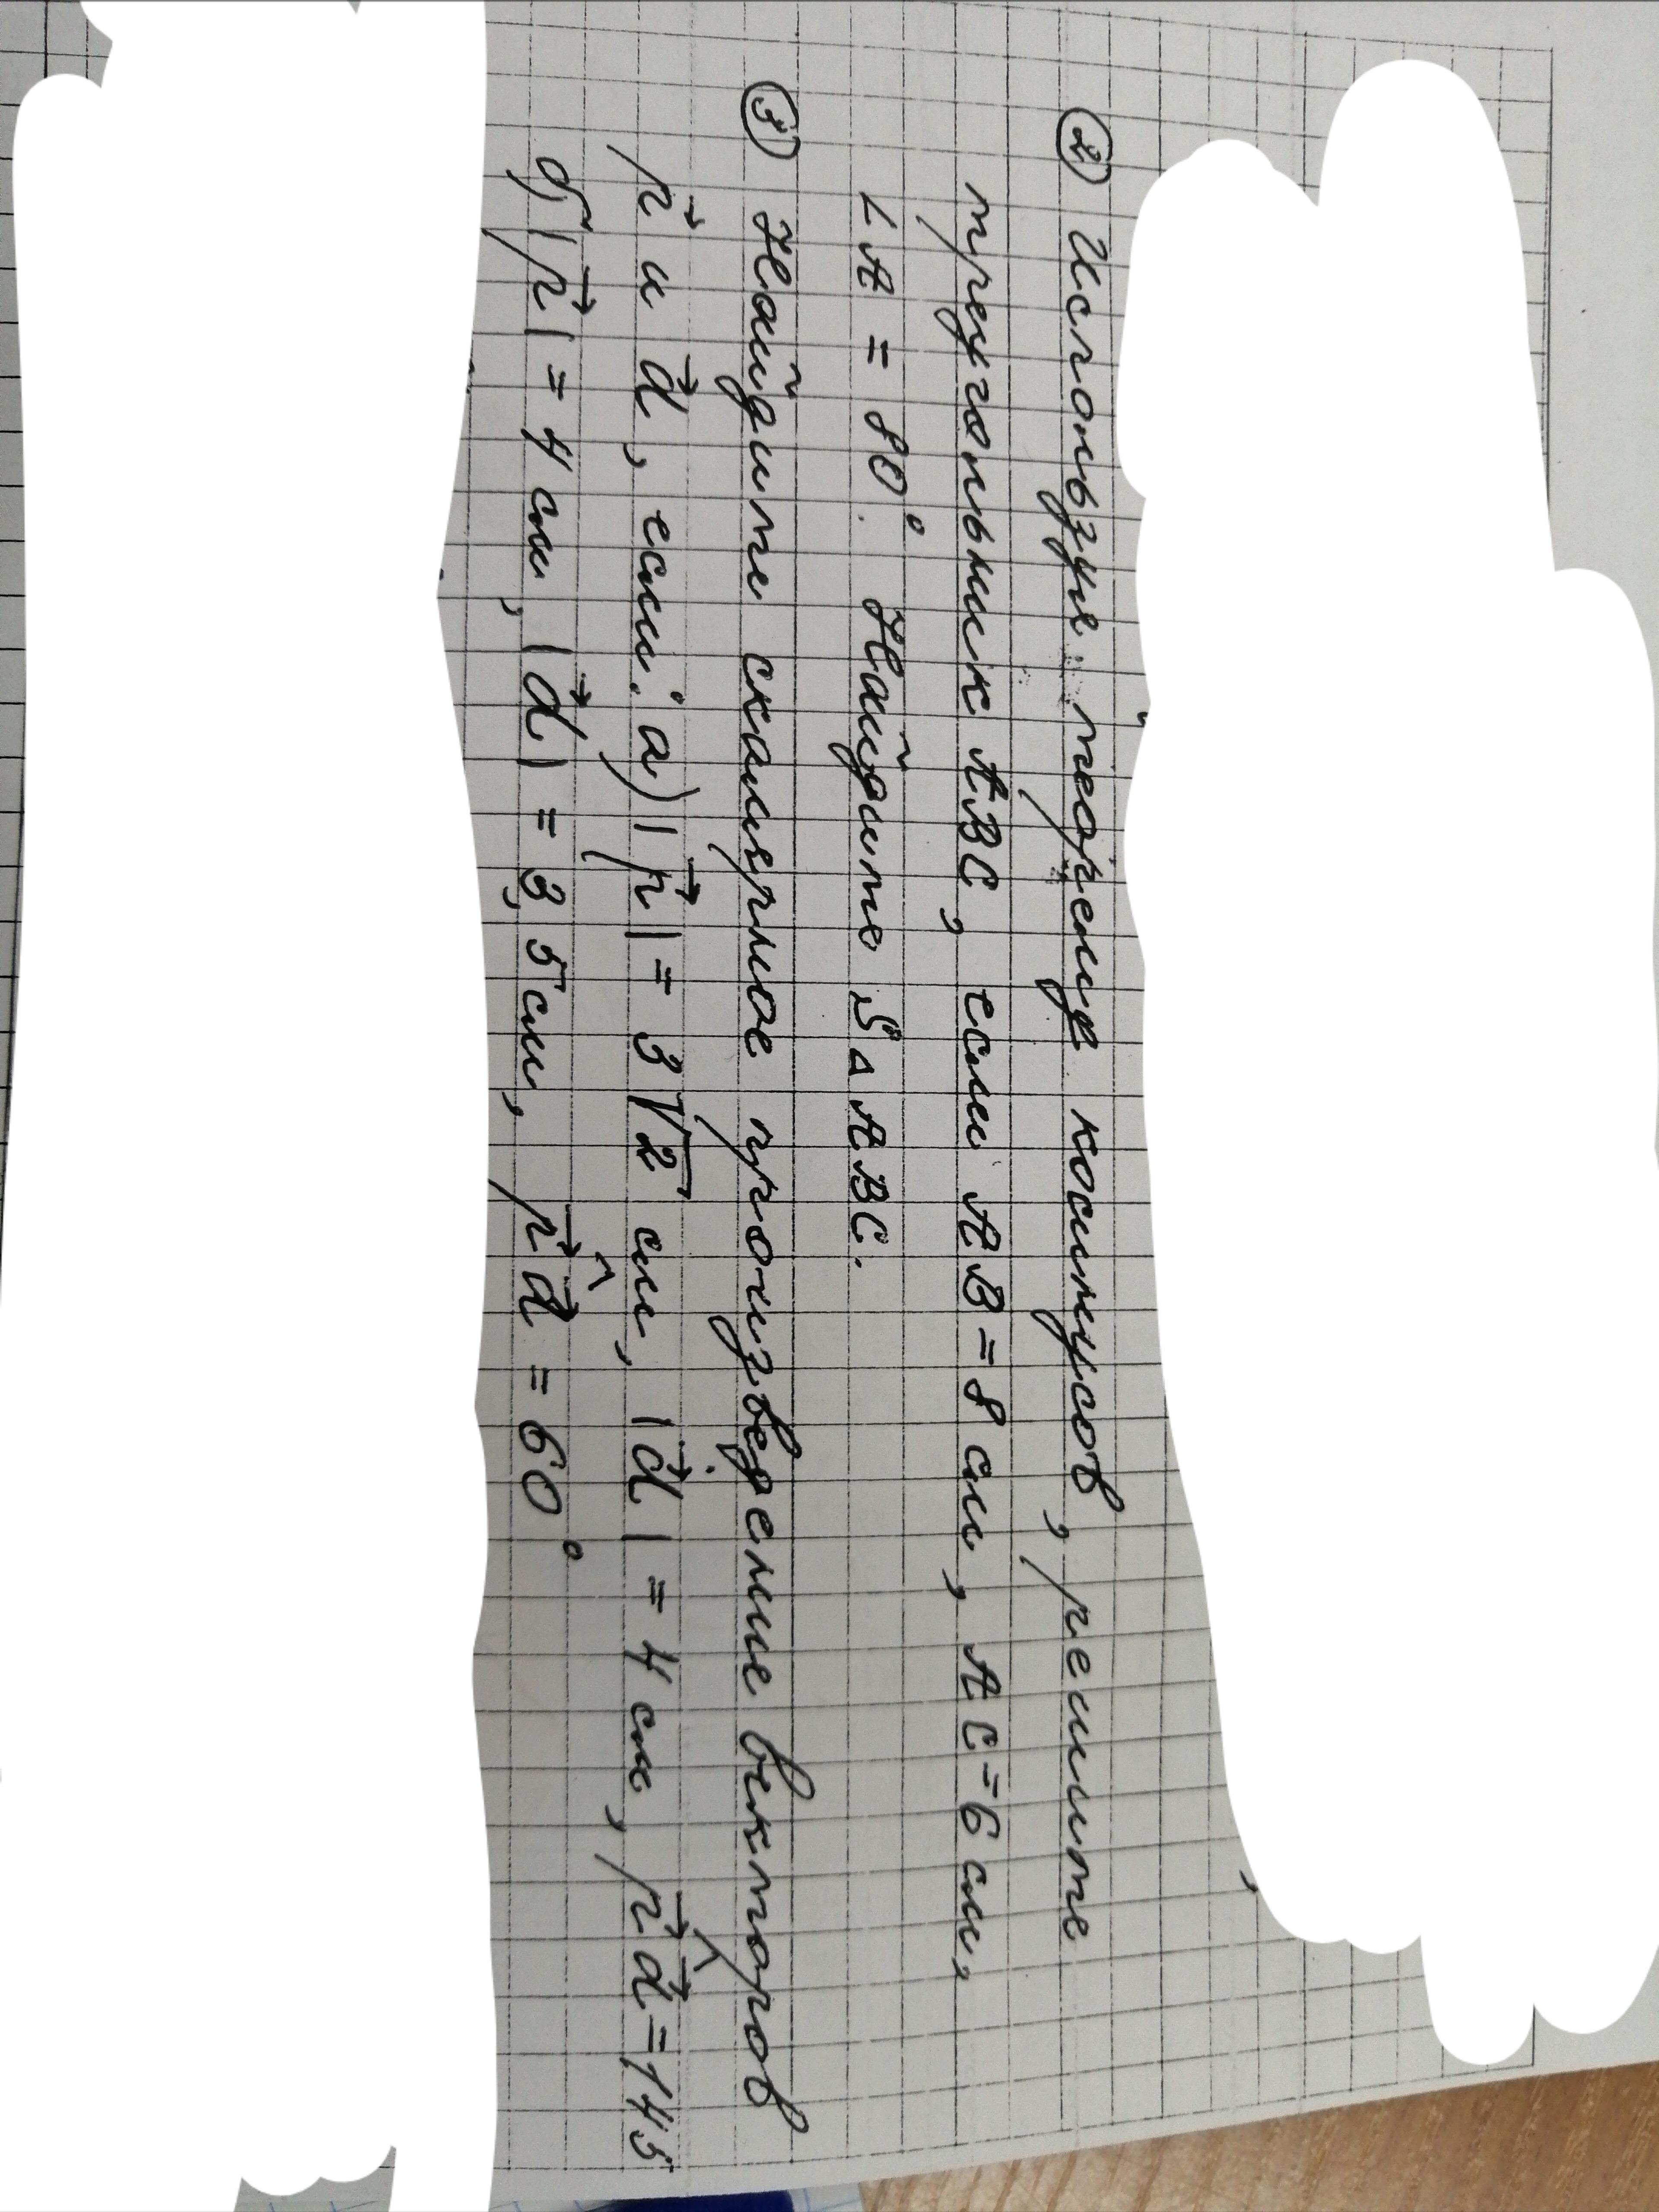 ② Используя теорему косинусов, решите
треугольник ABC, если AB = 8 см, AC = 6 см,
∠A = 80°. Найдите S △ ABC.
③ Найдите скалярное произведение векторов
p⃗ и d⃗, если: а) |p⃗| = 3√2 см, |d⃗| = 4 см, p⃗^d⃗ = 145
б) |p⃗| = 4 см, |d⃗| = 3,5 см, p⃗^d⃗ = 60°